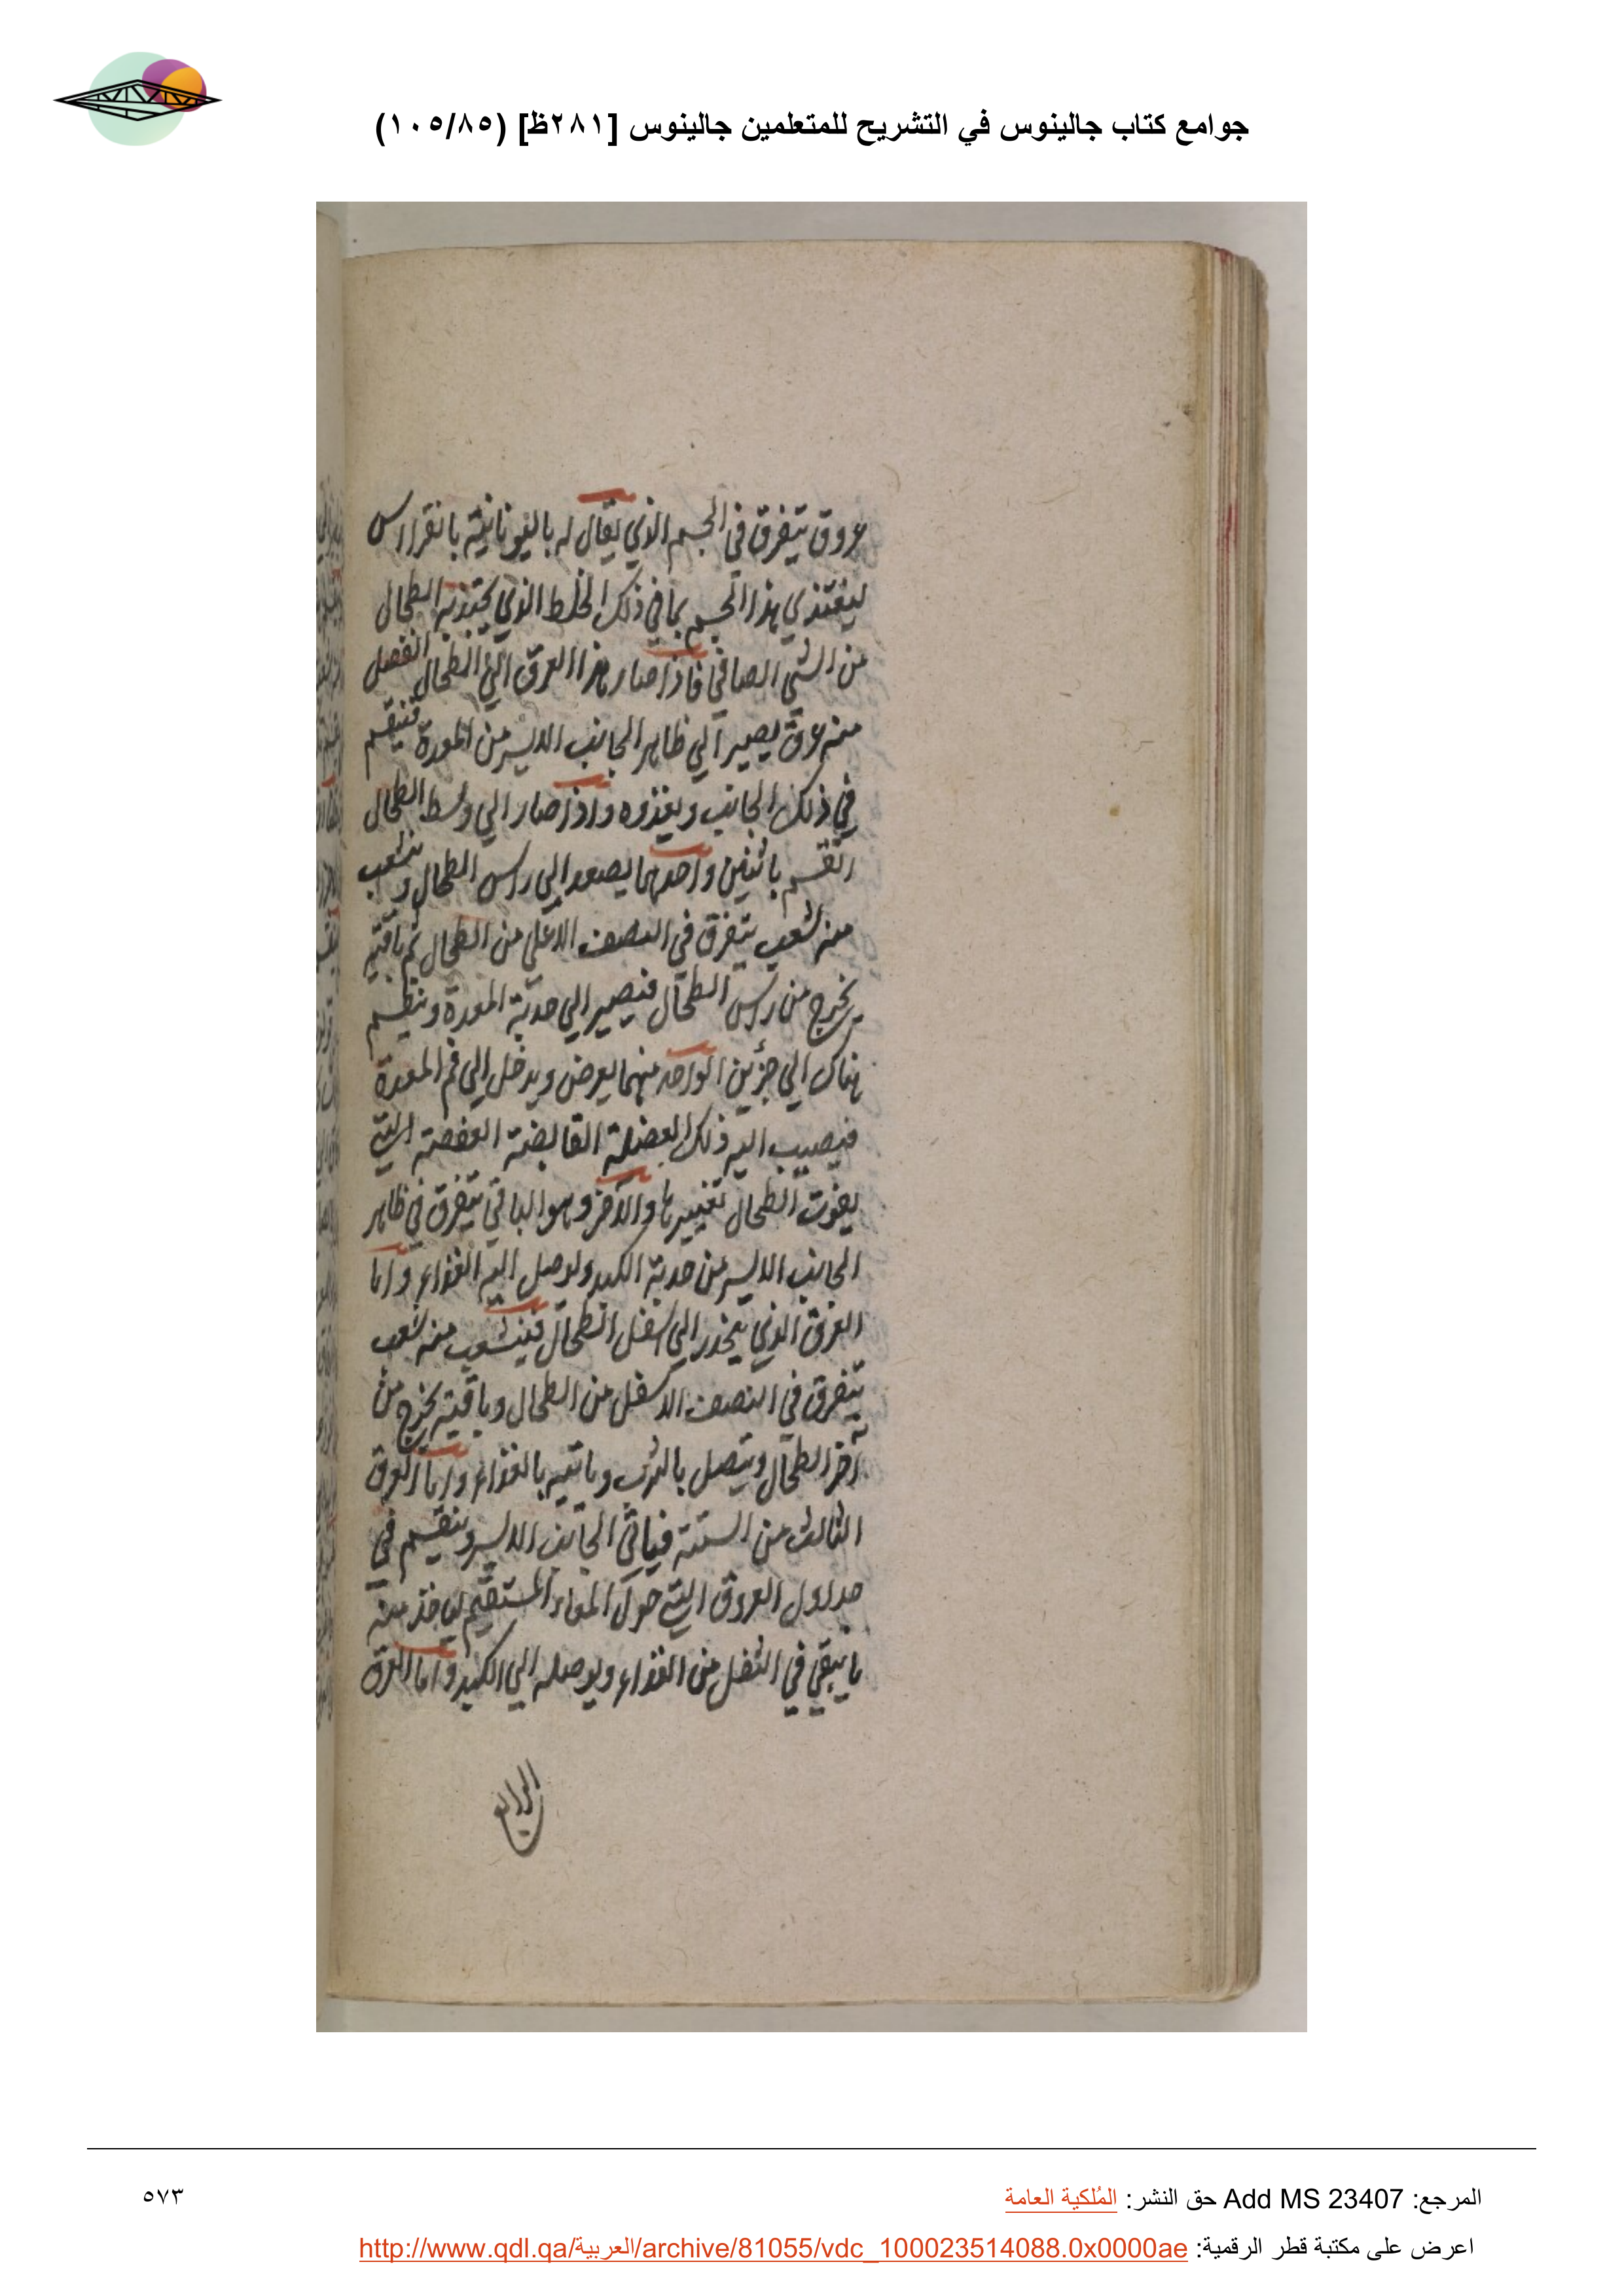 جوامع كتاب جالينوس في التشريح للمتعلمين جالينوس [٢٨١ظ] (١٠٥/٨٥)
عروق تتفرق في الجسم الذي يقال له باليونانية بانقراس
ليغتذي هذا الجسم بما في ذلك الخلط الذي يجتذبه الطحال
من الشي الصافي فاذا صار هذا العرق الي الطحال انفصل
منه عرق يصير الي ظاهر الجانب الايسر من المعدة فينقسم
في ذلك الجانب ويغذوه واذا صار الي وسط الطحال
انقسم باثنين واحدهما يصعد الي راس الطحال وتنشعب
منه شعب تتفرق في النصف الاعلي من الطحال ثم باقيه
يخرج من راس الطحال فيصير الي حدبة المعدة وينقسم
هناك الي جزئين الواحد منهما يعرض ويدخل الي فم المعدة
فيصب اليه ذلك الفضلة القابضة العفصة التي
يفوت الطحال تغييرها والآخر وهو الباقي يتفرق في ظاهر
الجانب الايسر من حدبة الكبد ويوصل اليه الغذاء واما
العرق الذي ينحدر الي اسفل الطحال فينشعب منه شعب
يتفرق في النصف الاسفل من الطحال وباقيه يخرج من
آخر الطحال ويتصل بالثرب وياتيه بالغذاء واما العرق
الثالث من الستة فياتي الجانب الايسر وينقسم في
جداول العروق التي حول المعاء المستقيم لياخذ منه
ما يبقي في الثفل من الغذاء ويوصله الي الكبد واما العرق
الرابع
المرجع: Add MS 23407 حق النشر: المُلكية العامة
٥٧٣
اعرض على مكتبة قطر الرقمية: http://www.qdl.qa/العربية/archive/81055/vdc_100023514088.0x0000ae